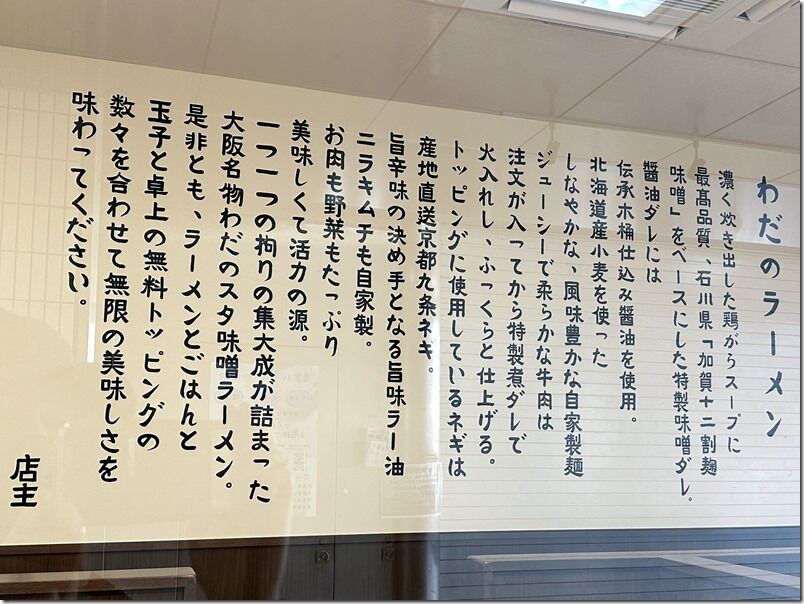 わだのラーメン
濃く炊き出した鶏がらスープに
最高品質、石川県「加賀十二割麹
味噌」をベースにした特製味噌ダレ。
醤油ダレには
伝承木桶仕込み醤油を使用。
北海道産小麦を使った
しなやかな、風味豊かな自家製麺
ジューシーで柔らかな牛肉は
注文が入ってから特製煮ダレで
火入れし、ふっくらと仕上げる。
トッピングに使用しているネギは
産地直送京都九条ネギ。
旨辛味の決め手となる旨味ラー油
ニラキムチも自家製。
お肉も野菜もたっぷり
美味しくて活力の源。
一つ一つの拘りの集大成が詰まった
大阪名物わだのスタ味噌ラーメン。
是非とも、ラーメンとごはんと
玉子と卓上の無料トッピングの
数々を合わせて無限の美味しさを
味わってください。
店主